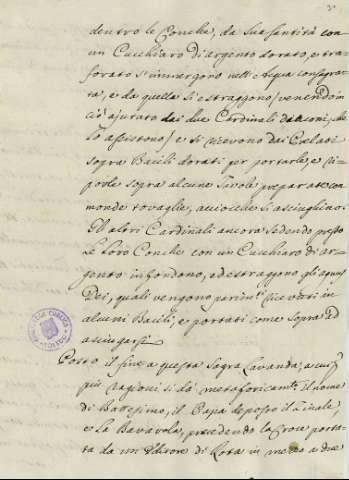 3
dentro le Conche, da Sua Santità con
un Cucchiaro di argento dorato, e tra-
forato s'immergono nell'Acqua consegra-
ta, e da quella si estraggono (venendo in
ciò ajutato dai due Cardinali diaconi, che
lo assistono) e si ricevono dai Prelati
sopra Bacili dorati per portarle, e ri-
porle sopra alcune Tavole preparate con
monde tovaglie, acciocche si asciughino.
Gli altri Cardinali ancora sedendo presso
le loro Conche con un Cucchiaro di ar-
gento infondono, ed estraggono gli agnus
Dei, quali vengono parim.te ricevuti in
alcuni Bacili, e portati come sopra ad
asciugarsi
Posto il fine a questa Sagra Lavanda, a cui
più ragioni si dà metaforicam.te il nome
di Battesimo, il Papa deposto il
e la Bavarola, precedendo la Croce porta-
ta da un Uditore di Rota in mezzo a due